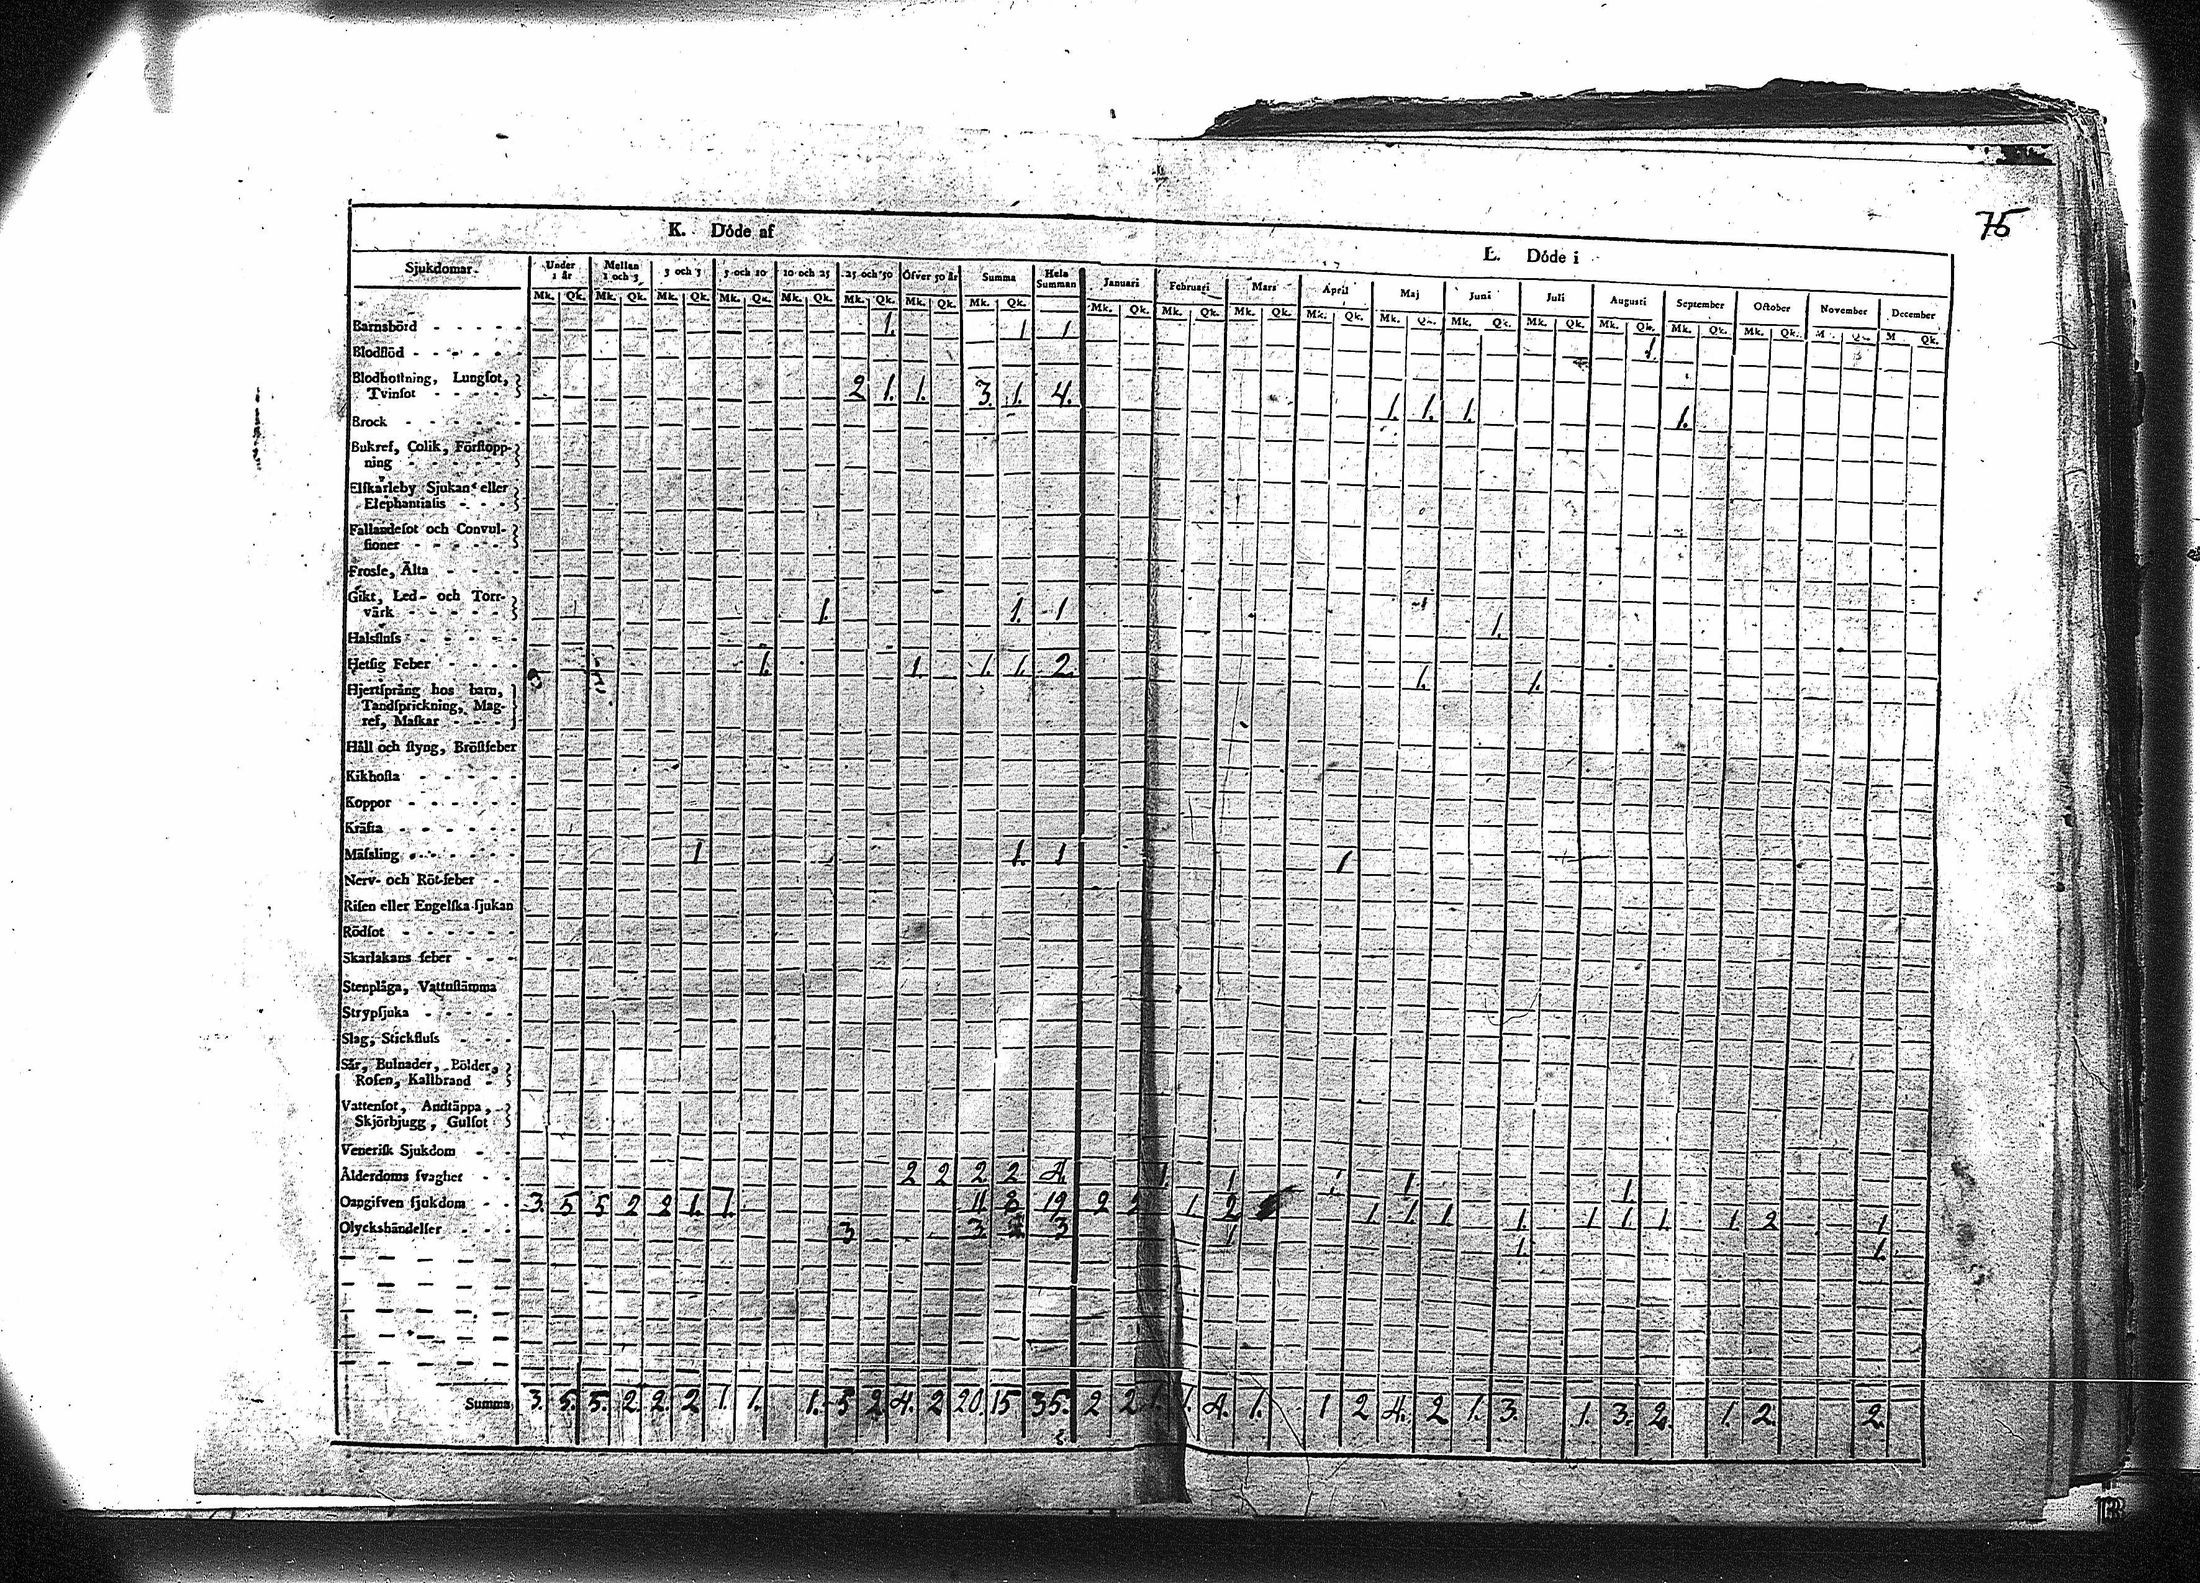 75
K. Döde af
L. Döde i
Sjukdomar. Under 1 år Mellan 1 och 3 3 och 5 5 och 10 10 och 25 25 och 50 Öfver 50 år Summa Hela Summan Januari Februari Mars April Maj Juni Juli Augusti September October November December
Mk. Qk. Mk. Qk. Mk. Qk. Mk. Qk. Mk. Qk. Mk. Qk. Mk. Qk. Mk. Qk. Mk. Qk. Mk. Qk. Mk. Qk. Mk. Qk. Mk. Qk. Mk. Qk. Mk. Qk. Mk. Qk. Mk. Qk. Mk. Qk. M Qk. M Qk.
Barnsbörd 1. 1 1 1.
Blodflöd
Blodhoſtning, Lungſot,
Tvinſot 2 1. 1. 3. 1. 4. 1. 1. 1. 1.
Brock
Bukref, Colik, Förſtopp-
ning
Elſkarleby Sjukan eller
Elephantiaſis
Fallandeſot och Convul-
ſioner
Froſſe, Älta
Gikt, Led- och Torr-
värk 1. 1. 1 1.
Halsfluſs
Hetſig Feber 1. 1. 1. 1. 2. 1. 1.
Hjertſprång hos barn,
Tandſprickning, Mag-
ref, Maſkar
Håll och ſtyng, Bröſtfeber
Kikhoſta
Koppor
Kräfta
Mäſsling 1 1. 1 1
Nerv- och Röt-feber
Riſen eller Engelſka ſjukan
Rödſot
Skarlakans feber
Stenplåga, Vattuſtämma
Strypſjuka
Slag, Stickfluſs
Sår, Bulnader, Bölder,
Roſen, Kallbrand
Vattenſot, Andtäppa,
Skjörbjugg, Gulſot
Veneriſk Sjukdom
Ålderdoms ſvaghet 2 2 2 2 4. 1. 1 1 1 1.
Oangifven ſjukdom 3. 5 5 2 2 1. 1. 11 8 19 2 2 1. 2 1 1. 1 1. 1 1 1. 1. 2 1.
Olyckshändelſer 3 3. 3 1 1. 1.
Summa 3. 5. 5. 2. 2. 2 1. 1. 1. 5 2. 4. 2 20. 15 35. 2 2 1. 1. 4. 1. 1 2 4. 2 1. 3. 1. 3. 2. 1. 2. 2.